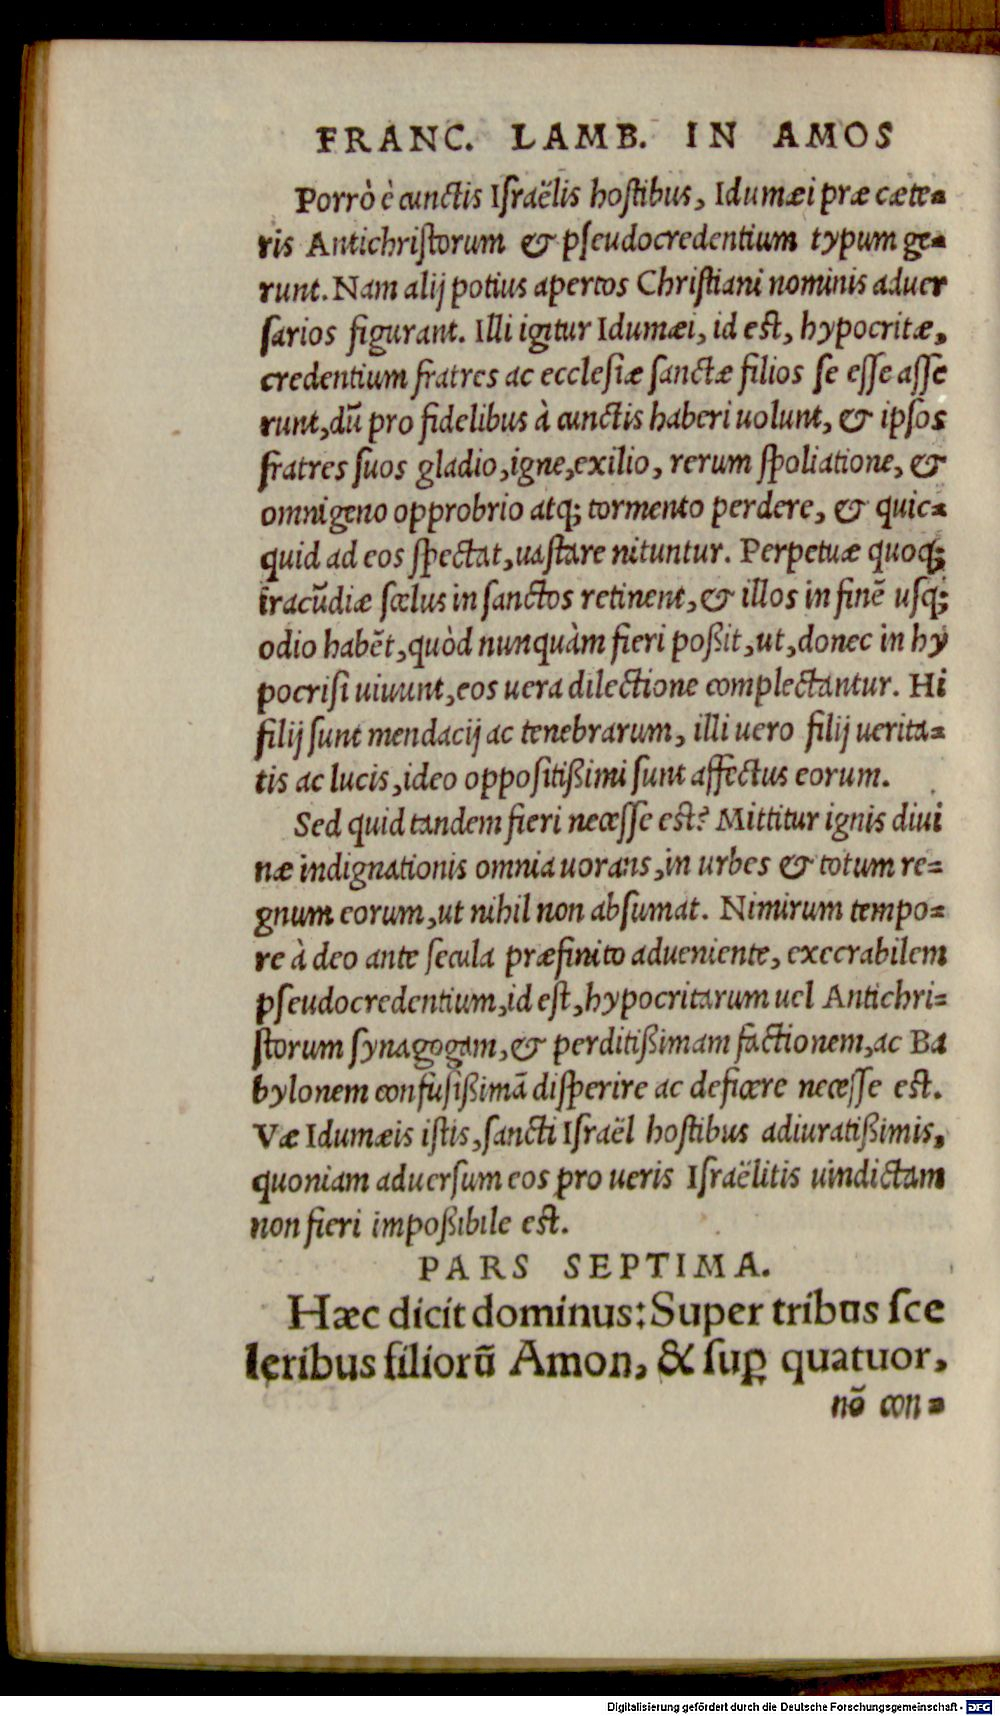 FRANC. LAMB. IN AMOS
Porrò è cunctis Iſraëlis hoſtibus, Idumæi præ cæte-
ris Antichriſtorum & pſeudocredentium typum ge-
runt. Nam alij potius apertos Chriſtiani nominis aduer
ſarios figurant. Illi igitur Idumæi, id eſt, hypocritæ,
credentium fratres ac eccleſiæ ſanctæ filios ſe eſſe aſſe
runt, dũ pro fidelibus à cunctis haberi uolunt, & ipſos
fratres ſuos gladio, igne, exilio, rerum ſpoliatione, &
omnigeno opprobrio atq; tormento perdere, & quic-
quid ad eos ſpectat, uaſtare nituntur. Perpetuæ quoq;
iracũdiæ ſcelus in ſanctos retinent, & illos in finẽ uſq;
odio habẽt, quòd nunquàm fieri poßit, ut, donec in hy
pocriſi uiuunt, eos uera dilectione complectantur. Hi
filij ſunt mendacij ac tenebrarum, illi uero filij uerita-
tis ac lucis, ideo oppoſitißimi ſunt affectus eorum.
Sed quid tandem fieri neceſſe eſt? Mittitur ignis diui
næ indignationis omnia uorans, in urbes & totum re-
gnum eorum, ut nihil non abſumat. Nimirum tempo-
re à deo ante ſecula præfinito adueniente, execrabilem
pſeudocredentium, id eſt, hypocritarum uel Antichri-
ſtorum ſynagogam, & perditißimam factionem, ac Ba
bylonem confuſißimã diſperire ac deficere neceſſe eſt.
Væ Idumæis iſtis, ſancti Iſraël hoſtibus adiuratißimis,
quoniam aduerſum eos pro ueris Iſraëlitis uindictam
non fieri impoßibile eſt.
PARS SEPTIMA.
Hæc dicit dominus: Super tribus ſce
leribus filiorũ Amon, & ſuꝑ quatuor,
nõ con-
Digitalisierung gefördert durch die Deutsche Forschungsgemeinschaft - DFG